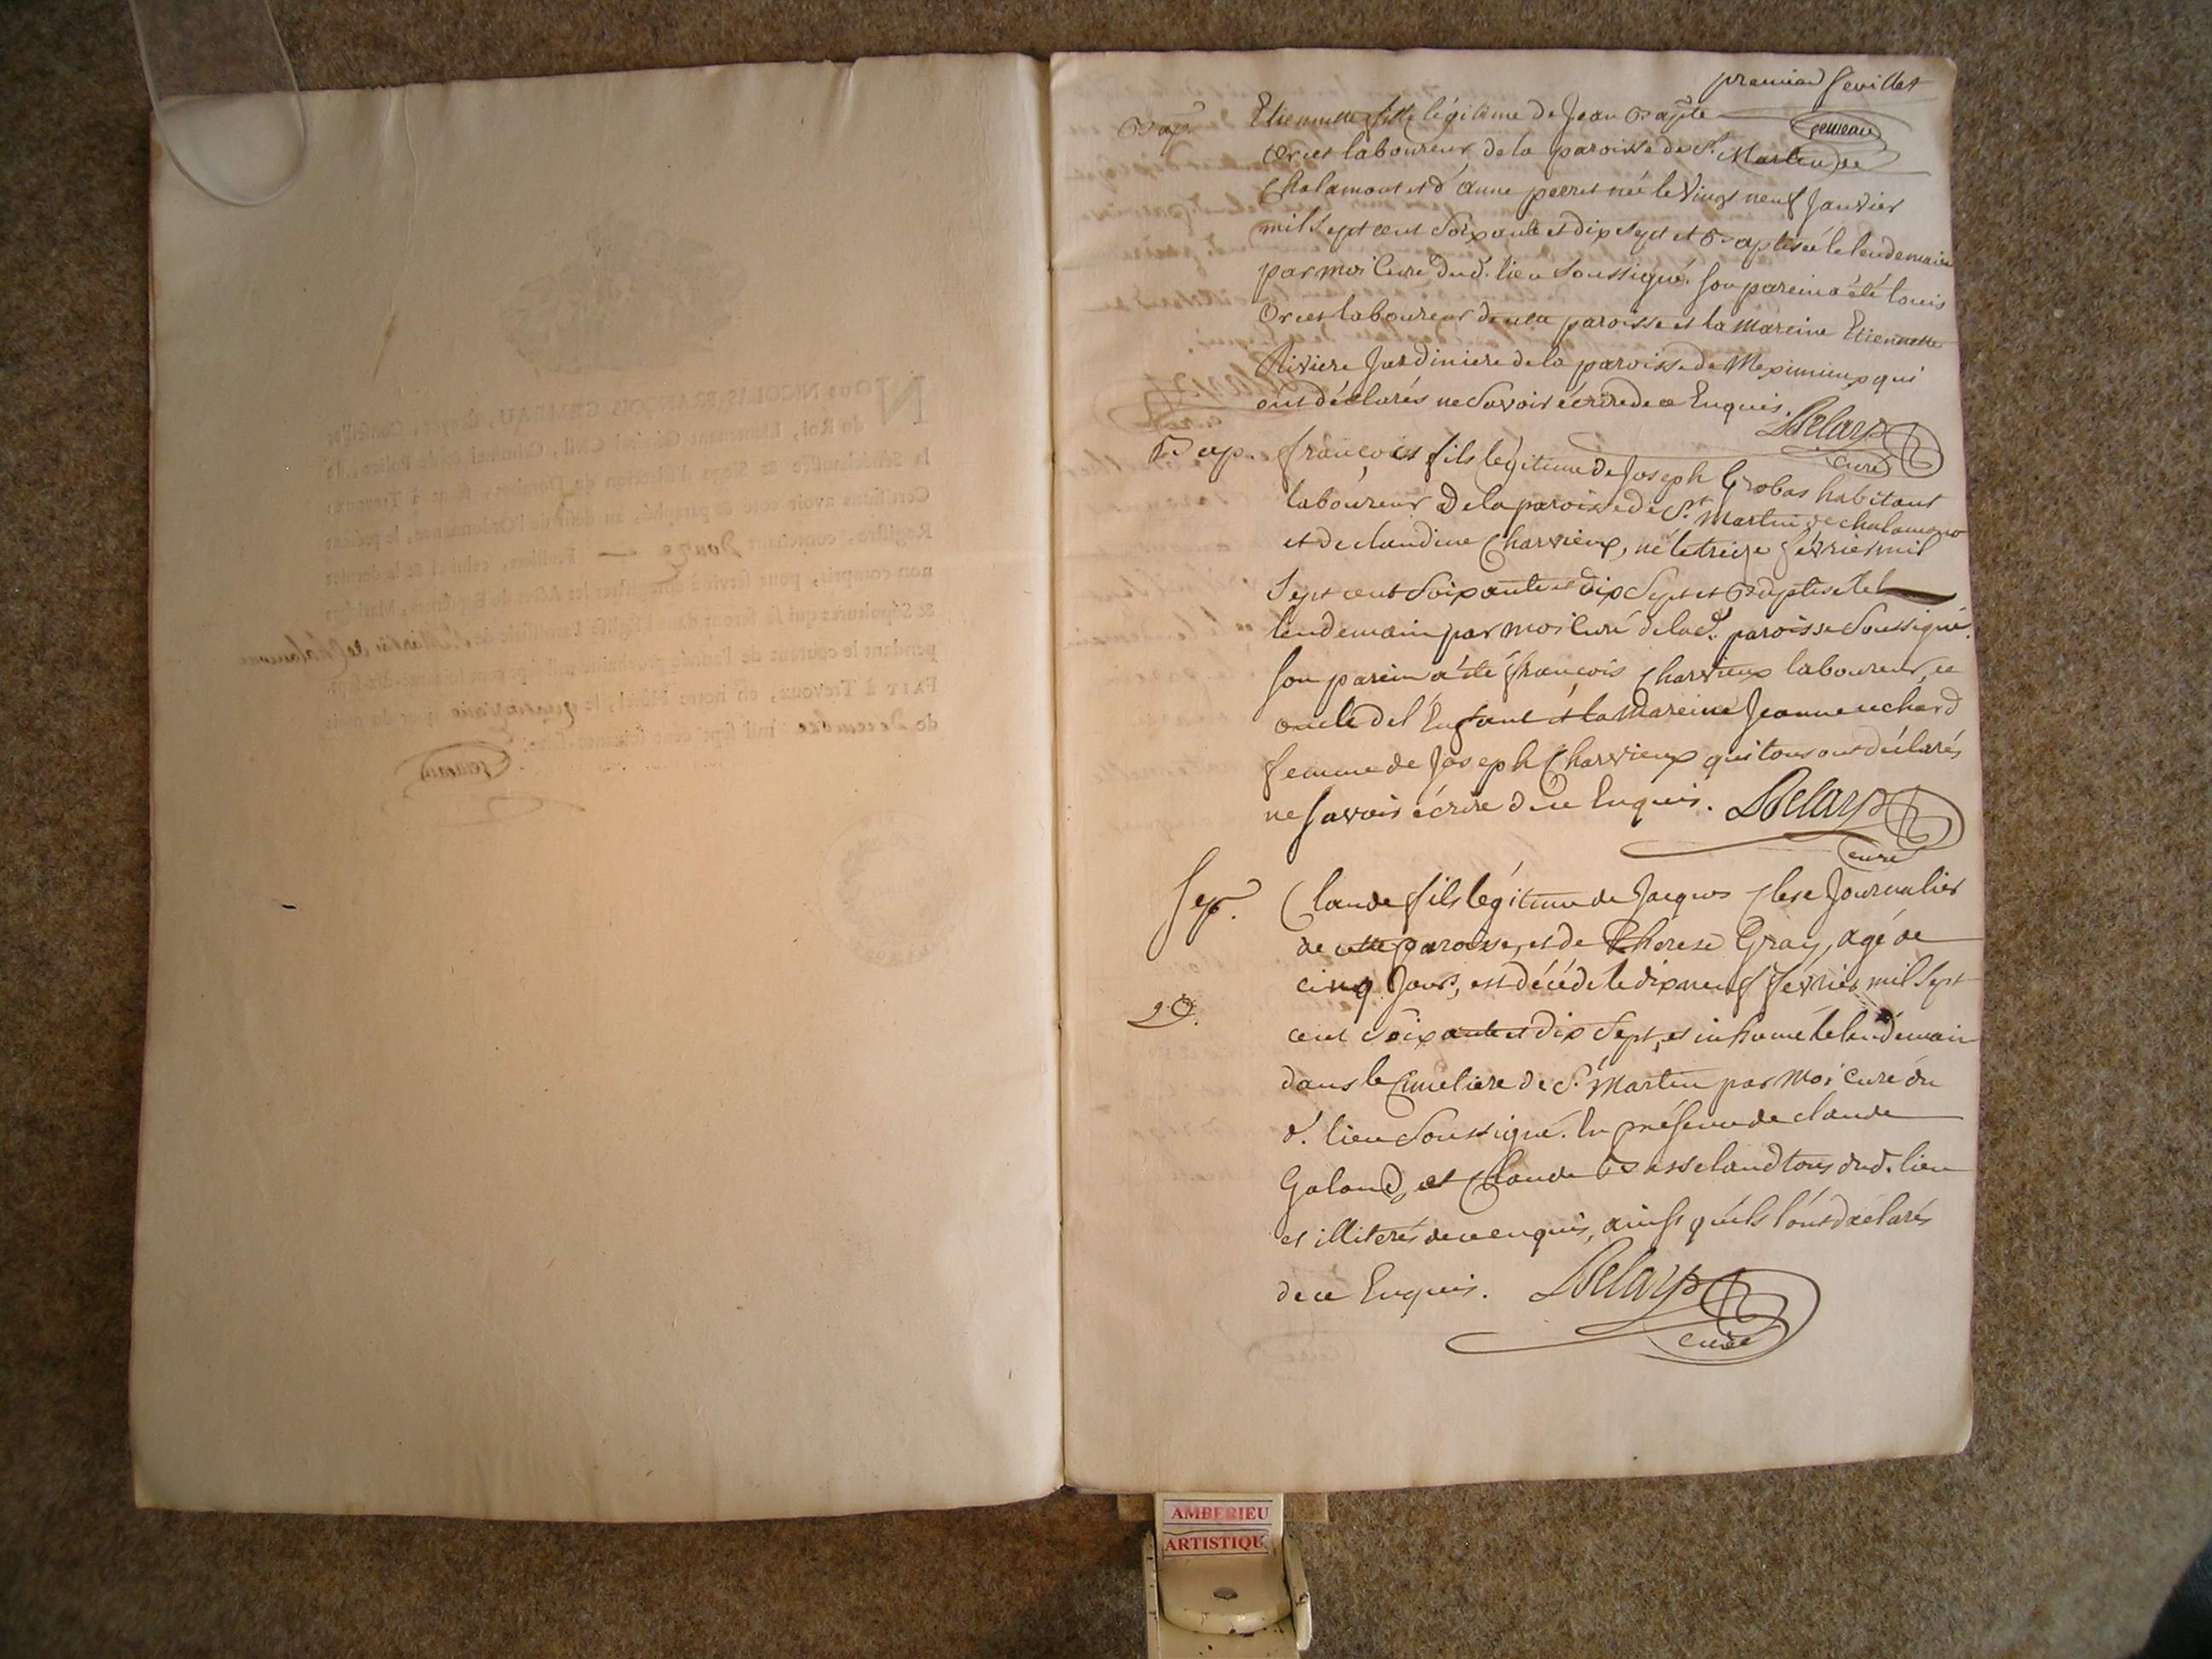 premier feuillet
Gemeau
Bap. Etiennette fille légitime de Jean Bapte
laboureur de la paroisse de St. Martin de
Chalamont et d'anne perret née le vingt neuf Janvier
mil Sept cent Soixante et dix Sept et Baptisée le lendemain
par moi Curé dud. lieu Soussigné. Son parein a été Louis
laboureur de paroisse et la Mareine Etiennette
Riviere Jardiniere de la paroisse de Meximieux qui
ont déclarés ne Savoir écrire de ce Enquis.
Curé
Bap. françois fils légitime de Joseph Grobas habitant
laboureur De la paroisse de St. Martin de chalamont
et de claudine Charvieux, né le treize février mil
Sept cent Soixante et dix Sept et Baptisé le
lendemain par moi Curé de lad. paroisse Soussigné.
Son parein a été françois Charvieux laboureur, et
oncle de l'Enfant et la Mareine Jeanne
femme de Joseph Charvieux qui tous ont déclarés
ne Savoir écrire de ce Enquis.
curé
Sep. Claude fils légitime de Jacques Journalier
de cette paroisse, et de Therese Gray, agé de
cinq Jours, est décédé le dix neuf février mil Sept
cent Soixante et dix Sept, et inhumé le lendemain
dans le Cimetiere de St. Martin par moi Curé du
d. lieu Soussigné. En présence de claude
Galand, et Claude Basseland tous dud. lieu
et illiterés de ce enquis, ainsi qu'ils l'ont déclarés
de ce Enquis.
curé
NOUS NICOLAS-FRANÇOIS GEMEAU, Ecuyer, Conseiller
du Roi, Lieutenant Général Civil, Criminel & de Police, en
la Sénéchaussée
Certifions avoir cotté & paraphé, au désir de l'Ordonnance, le présent
Registre, contenant Douze Feuillets, celui-ci & le dernier
non compris, pour servir à enregistrer les Actes de Baptêmes, Mariages
& Sépultures qui se feront dans l'Eglise Paroissiale de St Martin de Chalamont
pendant le courant de l'année prochaine mil sept cent soixante-dix-sept.
FAIT à Trevoux, en notre Hôtel, le jour du mois
de Decembre mil sept cent soixante-seize.
Gemeau
AMBERIEU
ARTISTIQU